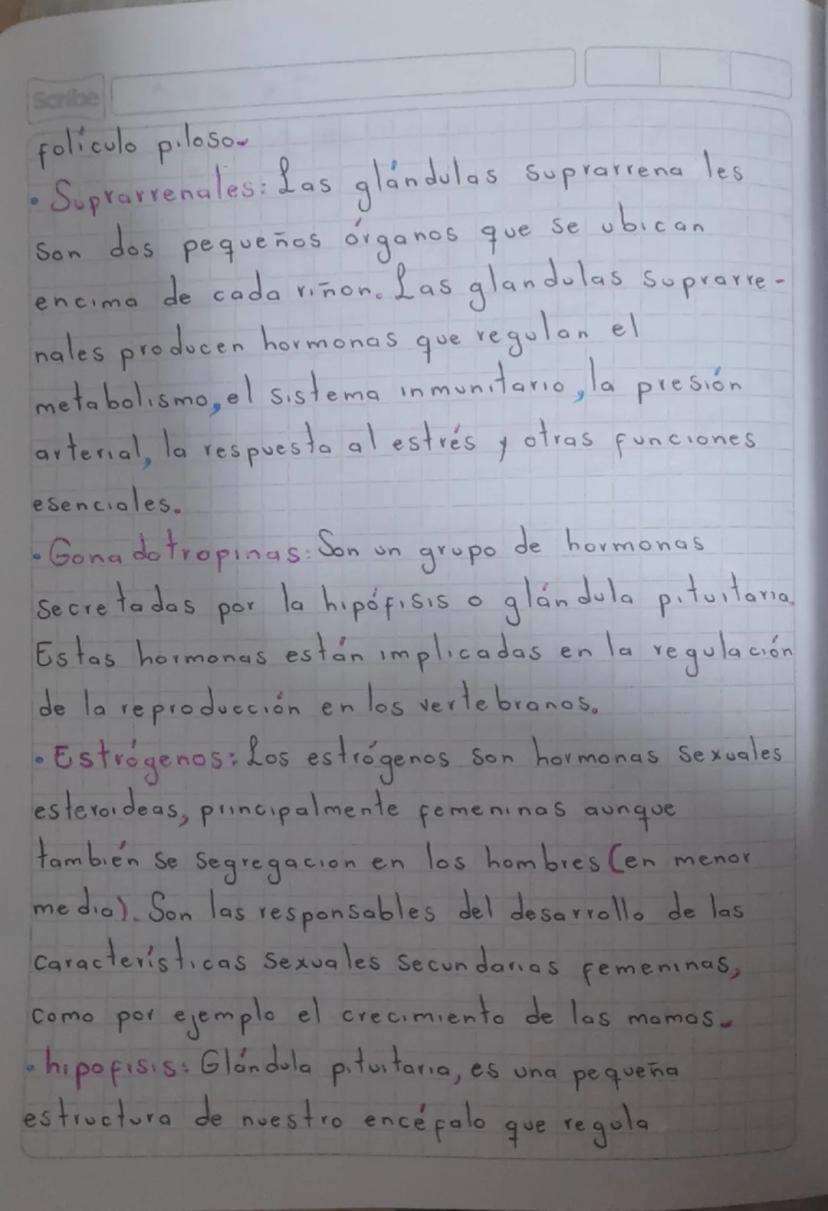 Scribe
folículo piloso.
• Suprarrenales: Las glándulas suprarrenales
son dos pequeños órganos que se ubican
encima de cada riñon. Las glandulas suprarre-
nales producen hormonas que regulan el
metabolismo, el sistema inmunitario, la presión
arterial, la respuesta al estrés y otras funciones
esenciales.
• Gonadotropinas: Son un grupo de hormonas
secretadas por la hipófisis o glándula pituitaria.
Estas hormonas están implicadas en la regulación
de la reproducción en los vertebranos.
• Estrógenos: Los estrógenos son hormonas sexuales
esteroideas, principalmente femeninas aunque
también se segregacion en los hombres (en menor
media). Son las responsables del desarrollo de las
características sexuales secundarias femeninas,
como por ejemplo el crecimiento de las mamas.
• hipofisis: Glándula pituitaria, es una pequeña
estructura de nuestro encéfalo que regula